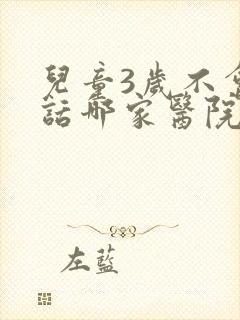 兒童3歲不會
話哪家醫院
左藍